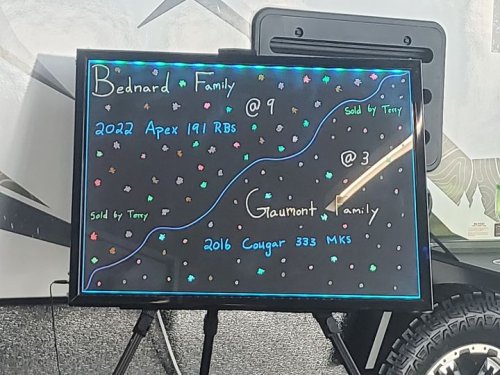 Bednard Family
@ 9
2022 Apex 191 RBs
Sold by Terry
Sold by Terry
@ 3
Gaumont Family
2016 Cougar 333 MKS